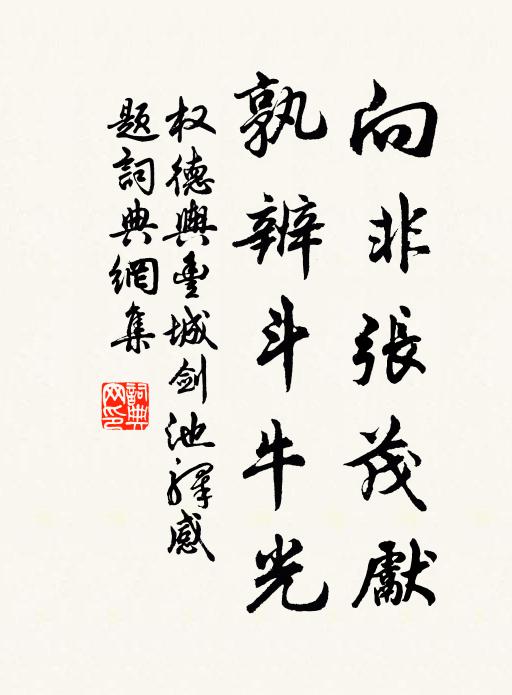 向非張茂獻
孰辨斗牛光
权德輿豊城剑池驛感
題詞典網集
詞典
网印